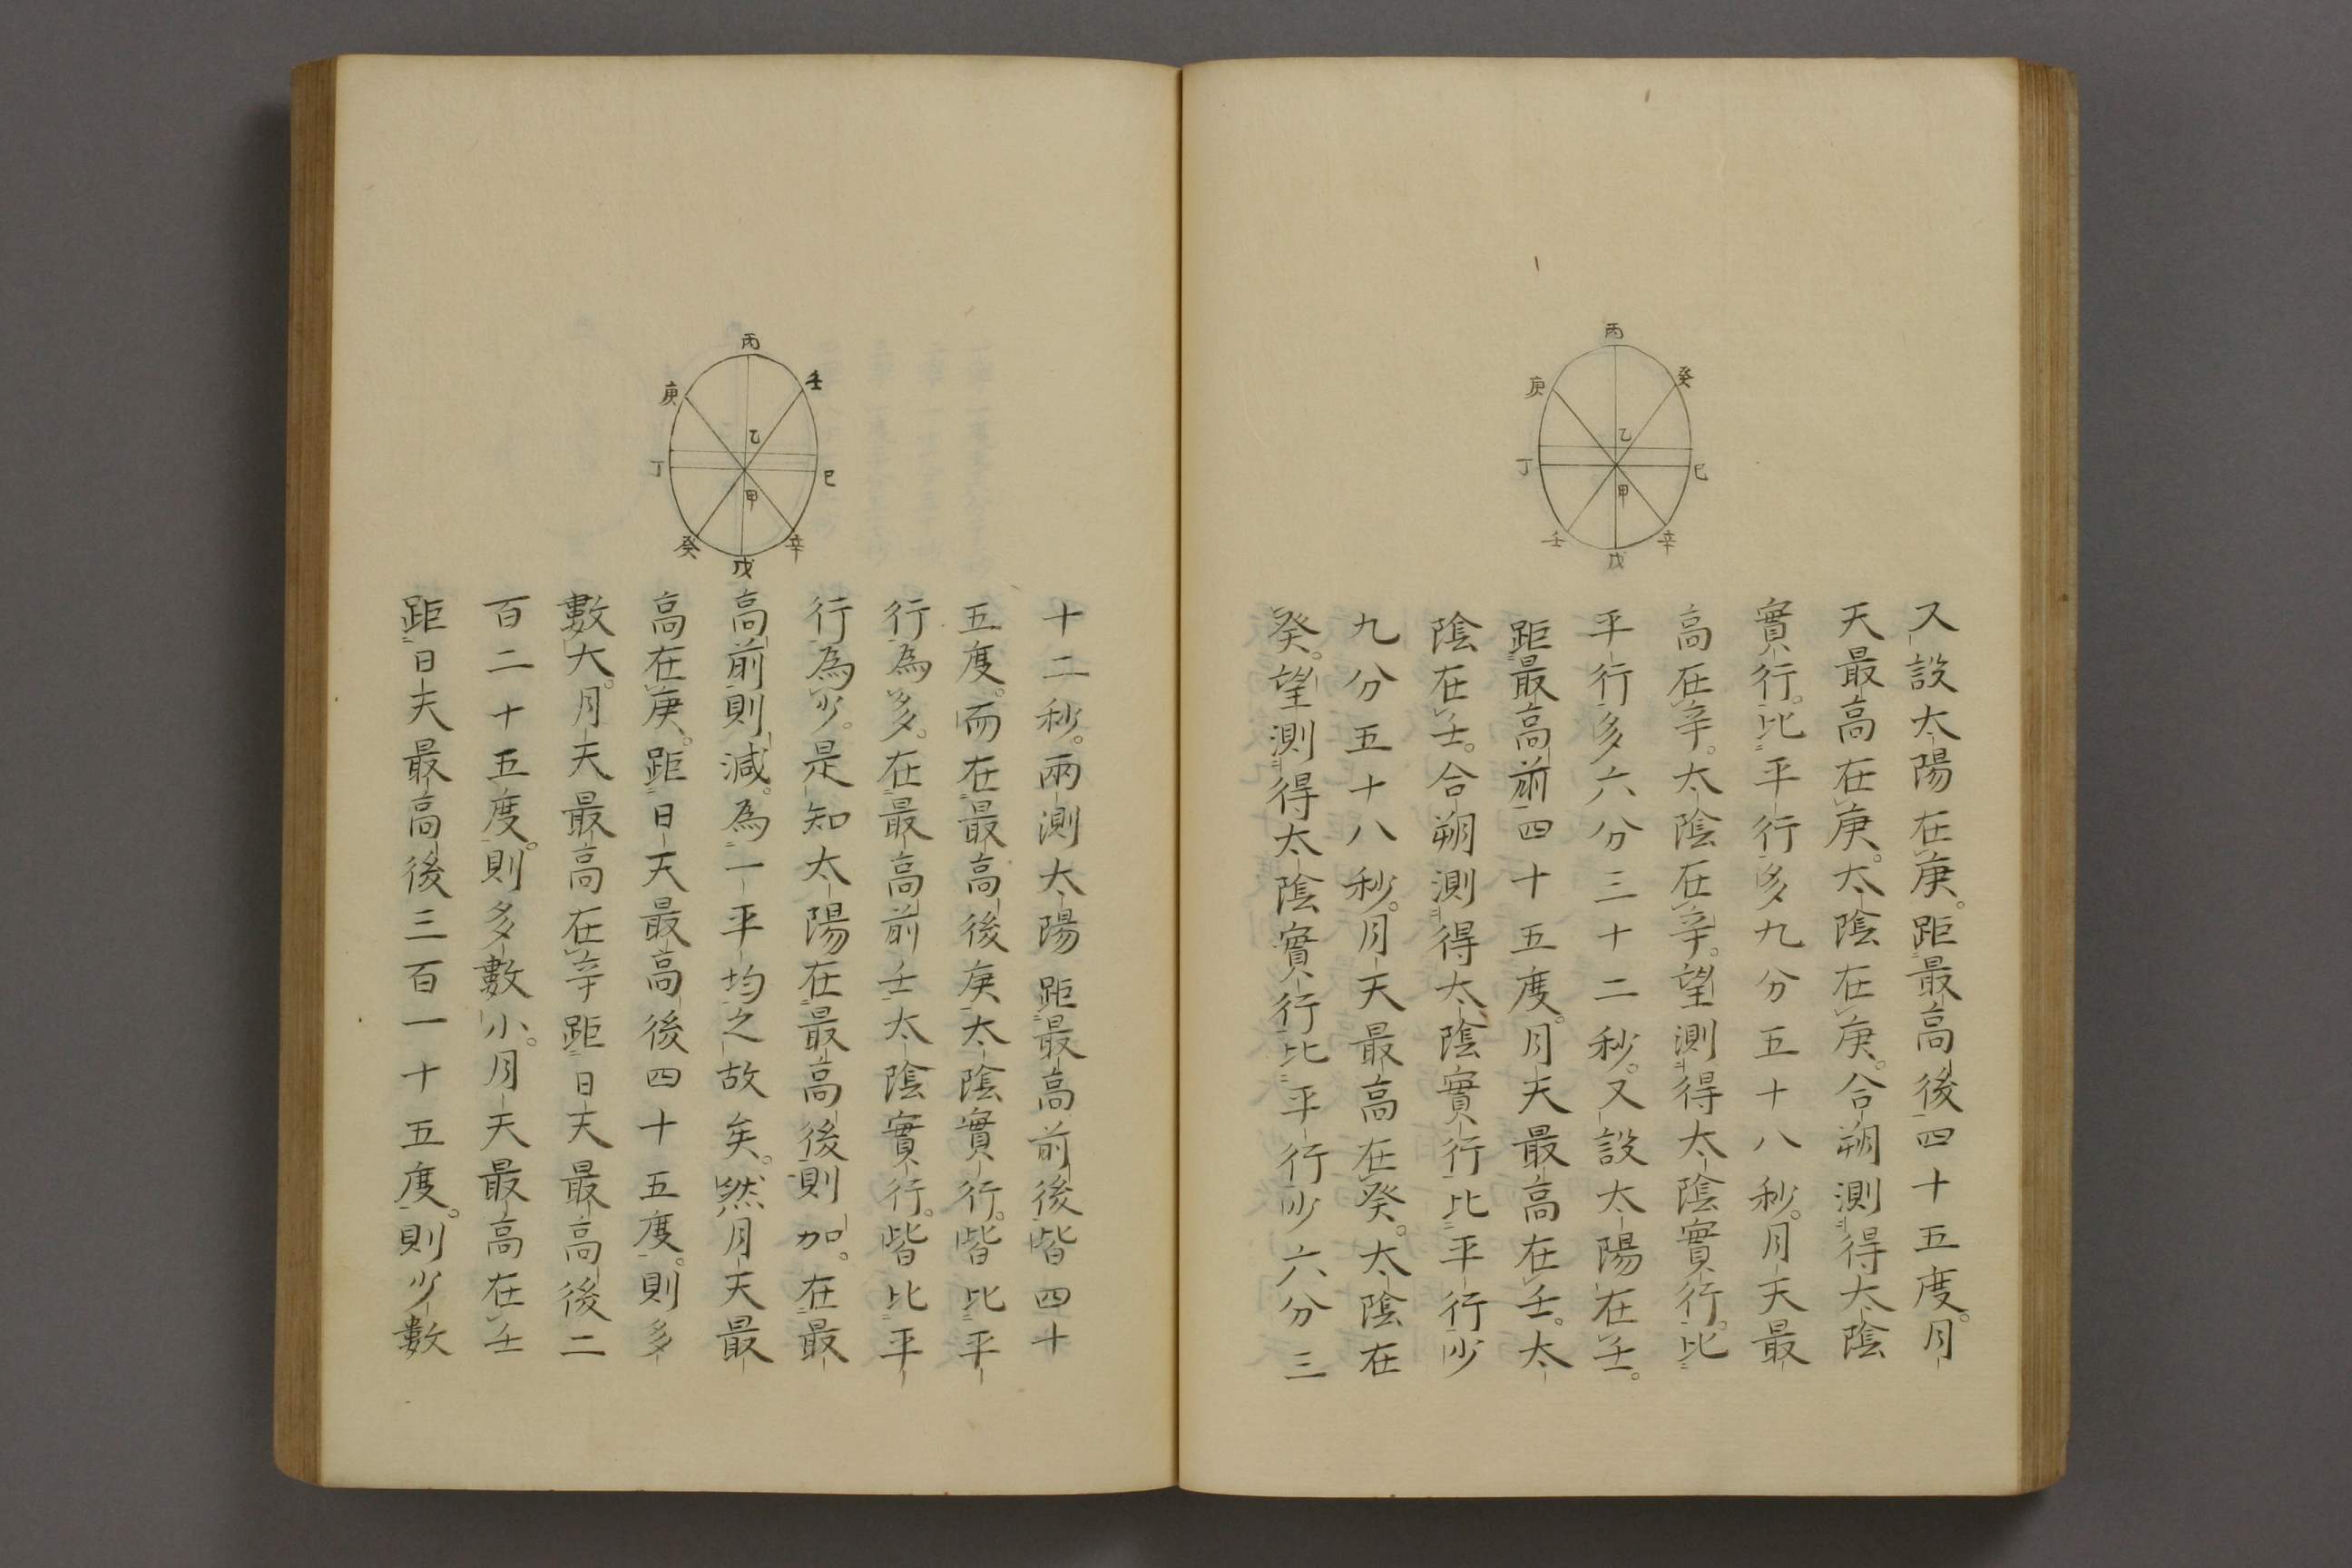 丙
癸
庚
乙
丁
巳
甲
壬
辛
戊
又設太陽在庚。距最高後四十五度。月
天最高在庚。太陰在庚。合朔測得太陰
實行。比平行多九分五十八秒。月天最
高在辛。太陰在辛。望測得太陰實行。比
平行多六分三十二秒。又設太陽在壬。
距最高前四十五度。月天最高在壬。太
陰在壬。合朔測得太陰實行比平行少
九分五十八秒。月天最高在癸。太陰在
癸。望測得太陰實行比平行少六分三
丙
壬
庚
乙
丁
巳
甲
癸
辛
戊
十二秒。兩測太陽距最高前後皆四十
五度。而在最高後庚太陰實行。皆比平
行為多。在最高前壬太陰實行。皆比平
行為少。是知太陽在最高後則加。在最
高前則減。為一平均之故矣。然月天最
高在庚。距日天最高後四十五度。則多
數大。月天最高在辛距日天最高後二
百二十五度。則多數小。月天最高在壬
距日天最高後三百一十五度。則少數